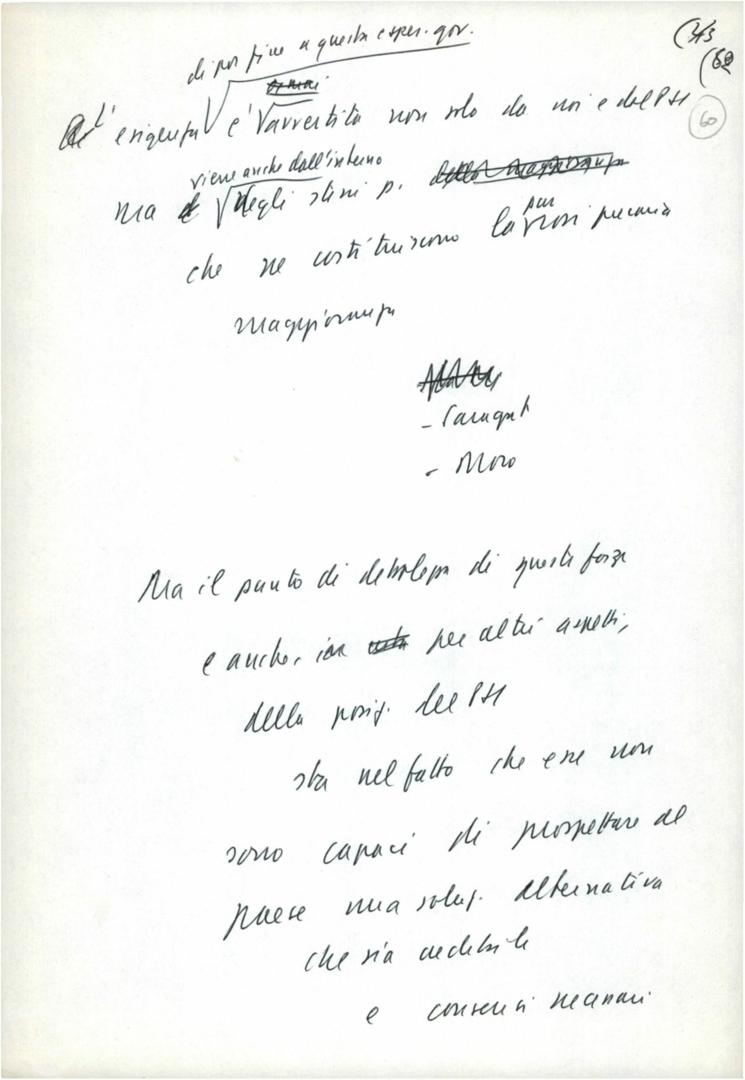 (2/3
(60
60
di por fine a questa esper. gov.
L'esigenza è avvertita non solo da noi e dal PSI
viene anche dall'interno
ma degli stessi p.
che ne costituiscono la pur precaria
maggioranza
- Saragat
- Moro
Ma il punto di debolezza di queste forze
e anche, per altri aspetti,
della posiz. del PSI
sta nel fatto che esse non
sono capaci di prospettare al
paese una soluz. alternativa
che sia credibile
e consensi necessari